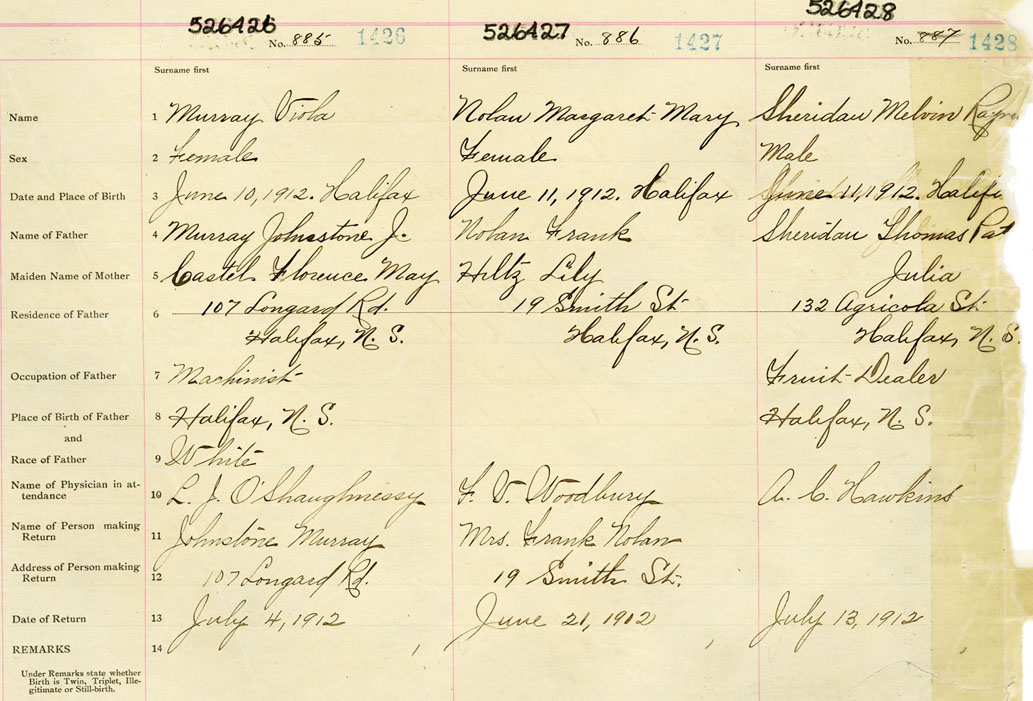 526426 526427 526428
No. 885 1426 No. 886 1427 No. 887 1428
Surname first Surname first Surname first
Name 1 Murray Viola Nolan Margaret Mary Sheridan Melvin
Sex 2 Female Female Male
Date and Place of Birth 3 June 10, 1912. Halifax June 11, 1912. Halifax June 11, 1912. Halif
Name of Father 4 Murray Johnstone J. Nolan Frank Sheridan Thomas Pat
Maiden Name of Mother 5 Castel Florence May Hiltz Lily Julia
Residence of Father 6 107 Longard Rd. 19 Smith St. 132 Agricola St.
Halifax, N. S. Halifax, N. S. Halifax, N. S.
Occupation of Father 7 Machinist Fruit Dealer
Place of Birth of Father 8 Halifax, N. S. Halifax, N. S.
and
Race of Father 9 White
Name of Physician in at-
tendance 10 L. J. O'Shaughnessy F. V. Woodbury A. C. Hawkins
Name of Person making
Return 11 Johnstone Murray Mrs. Frank Nolan
Address of Person making
Return 12 107 Longard Rd. 19 Smith St.
Date of Return 13 July 4, 1912 June 21, 1912 July 13, 1912
REMARKS 14
Under Remarks state whether
Birth is Twin, Triplet, Ille-
gitimate or Still-birth.